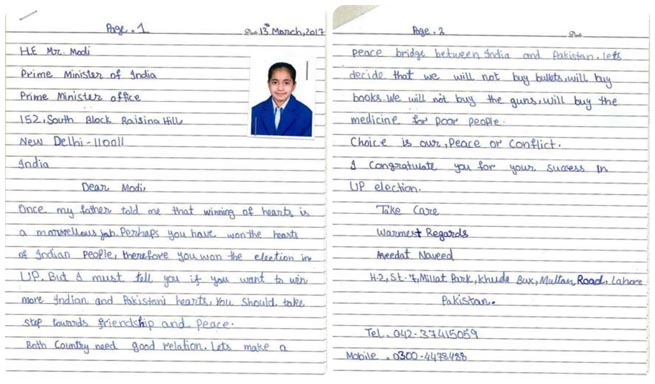 Page. 1
Date 13th March, 2017
H.E Mr. Modi
Prime Minister of India
Prime Minister office
152, South Block Raisina Hill
New Delhi-110011
India
Dear Modi,
Once my father told me that winning of hearts is
a marvellous job. Perhaps you have won the hearts
of Indian people, therefore you won the election in
UP. But I must tell you if you want to win
more Indian and Pakistani hearts, You should take
step towards friendship and peace.
Both Country need good relation. Lets make a
Page. 2
Date
peace bridge between India and Pakistan. lets
decide that we will not buy bullets, will buy
books. We will not buy the guns, will buy the
medicine for poor people.
Choice is our, Peace or Conflict.
I Congratulate you for your success in
UP election.
Take Care
Warmest Regards
Aeedat Naveed
H-2, St- 7, Millat Park, Khuda Bux, Multan Road, Lahore
Pakistan.
Tel. 042-37415059
Mobile. 0300-4478488